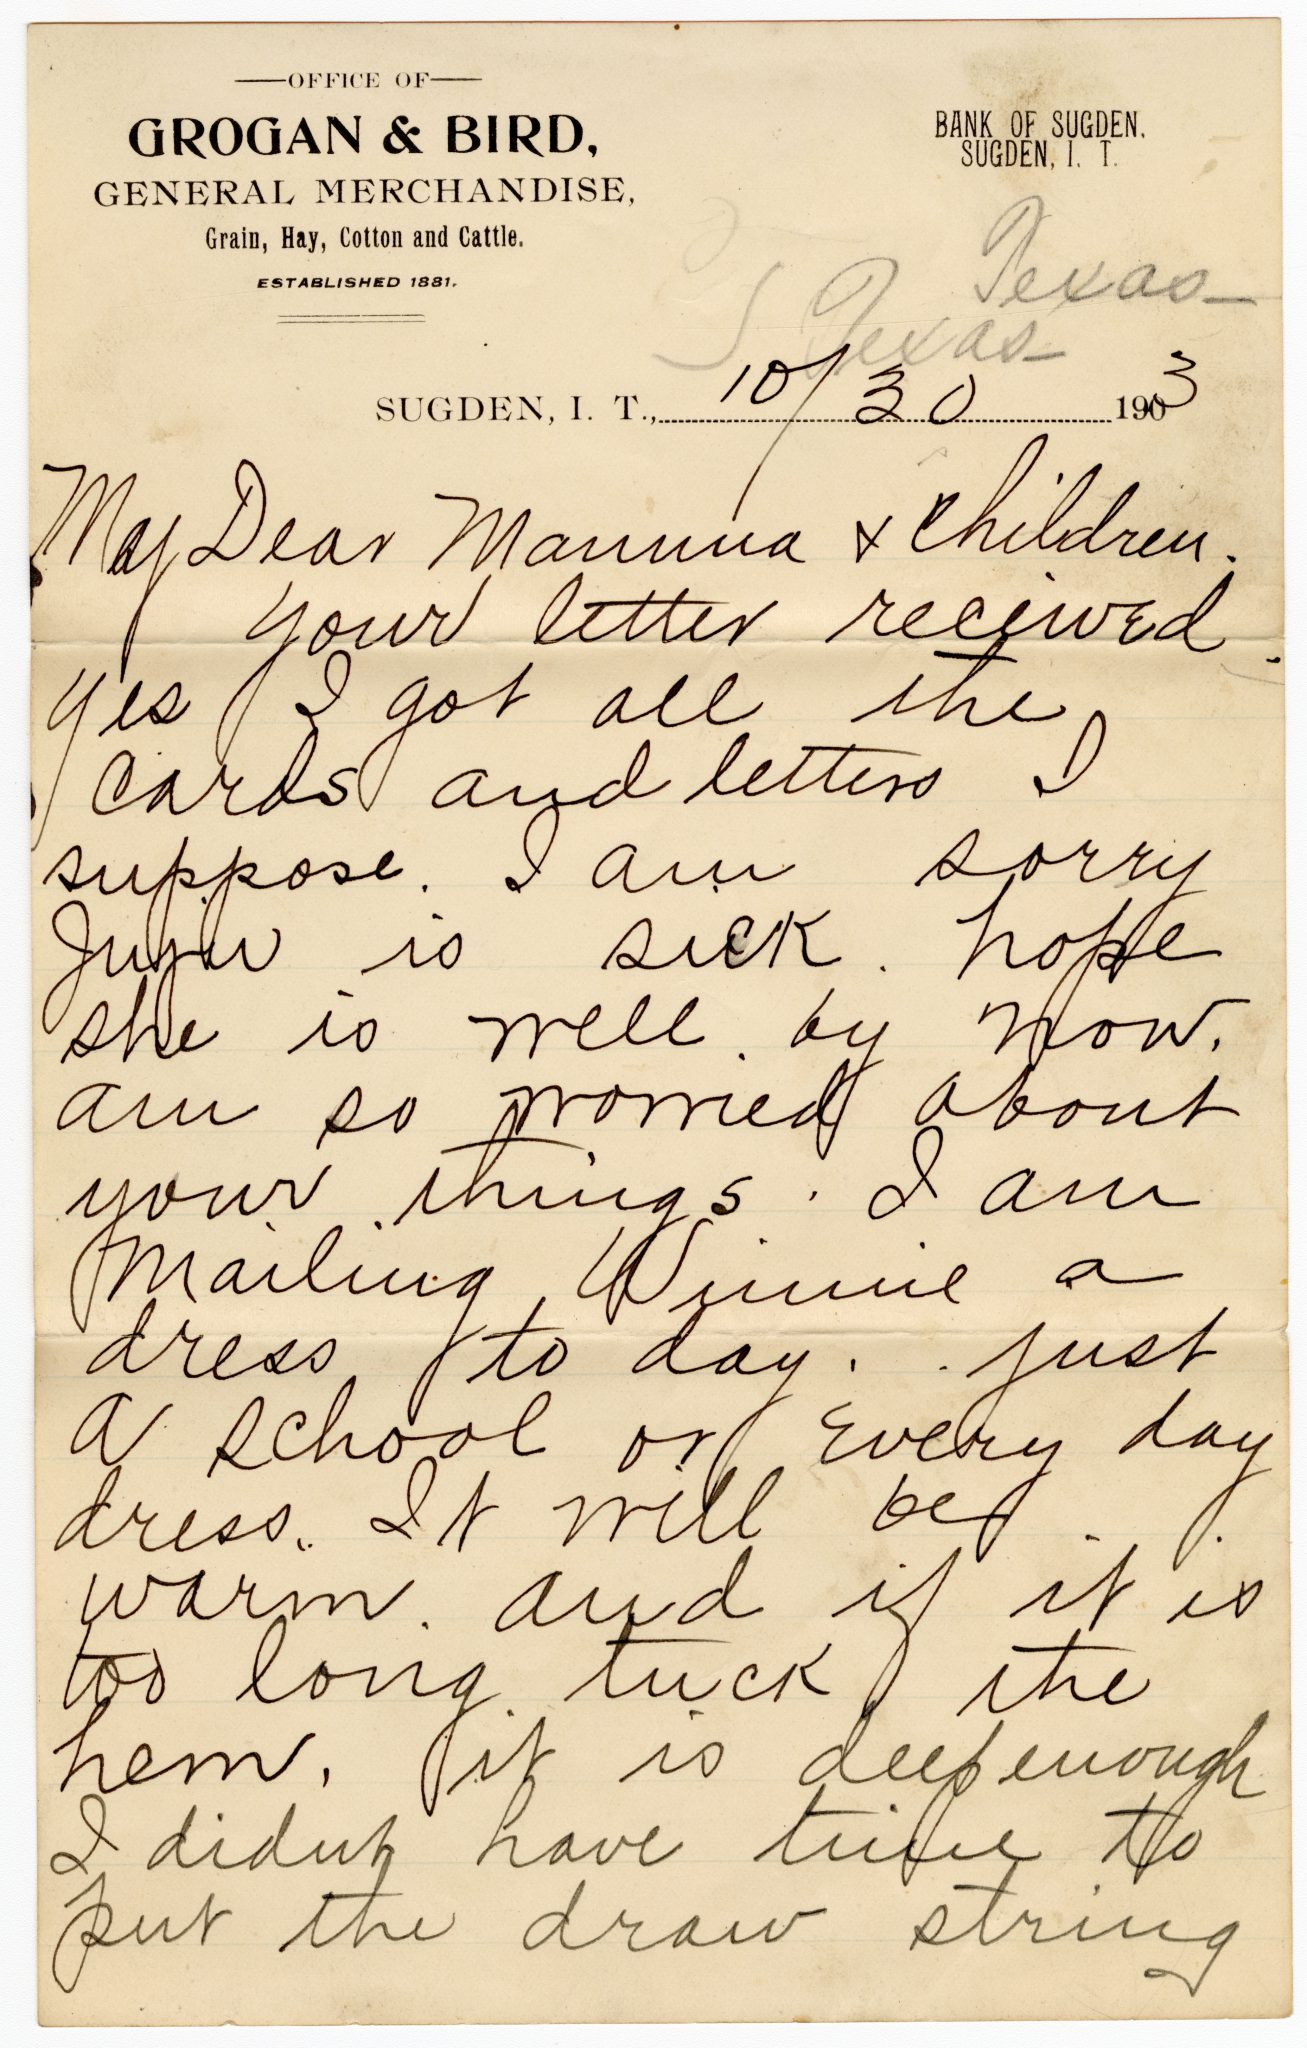 OFFICE OF
GROGAN & BIRD,
GENERAL MERCHANDISE,
Grain, Hay, Cotton and Cattle.
ESTABLISHED 1881.
BANK OF SUGDEN,
SUGDEN, I. T.
Texas
Texas
SUGDEN, I. T., 10/30 1903
My Dear Mamma & children.
your letter recieved.
yes I got all the
cards and letters I
suppose. I am sorry
is sick. hope
she is well by now.
am so worried about
your things. I am
mailing Winnie a
dress to day. just
a school or every day
dress. It will be
warm. and if it is
too long tuck the
hem. it is deep enough
I didnt have time to
put the draw string